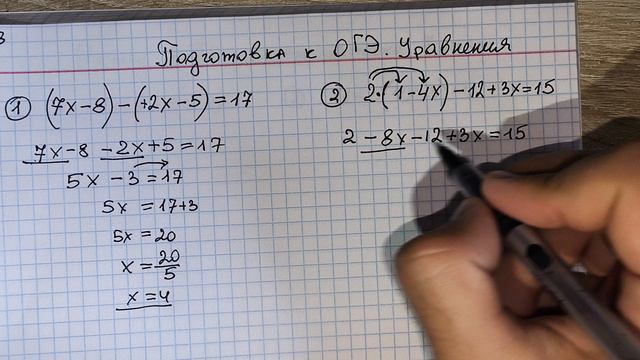 3
Подготовка к ОГЭ. Уравнения
1 (7x-8)-(+2x-5)=17
7x-8-2x+5=17
5x-3=17
5x=17+3
5x=20
x=20/5
x=4
2 2·(1-4x)-12+3x=15
2-8x-12+3x=15